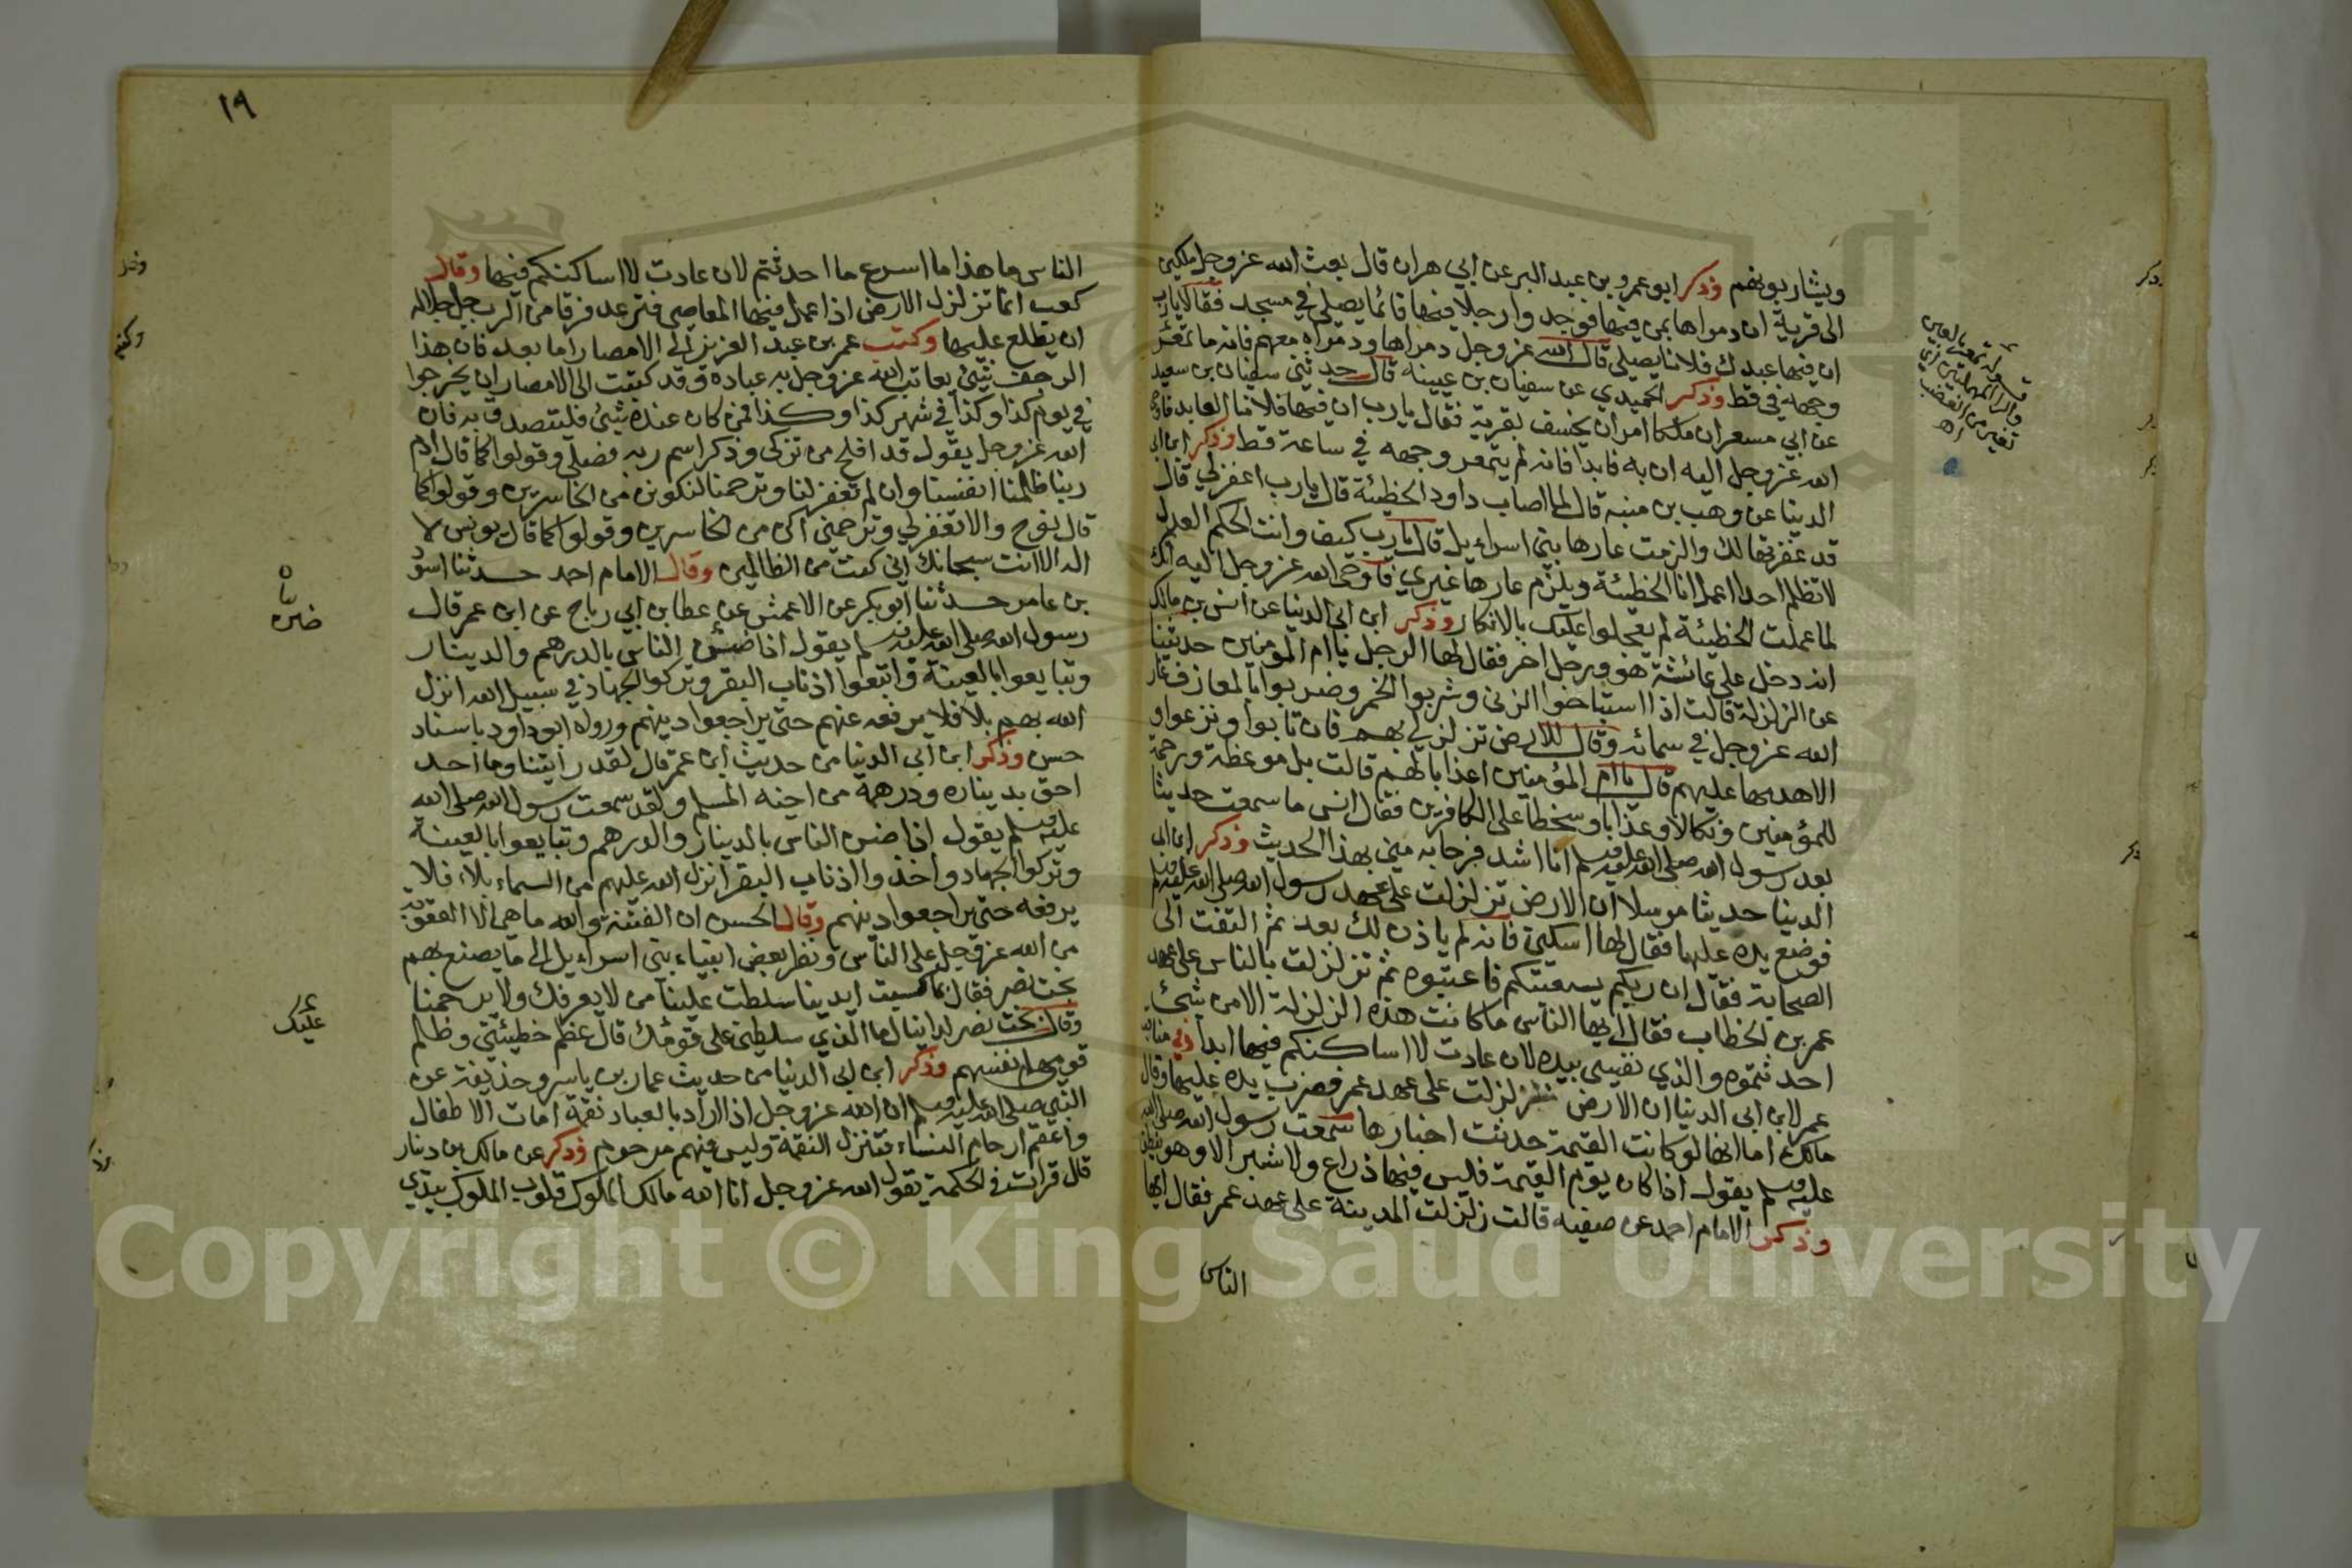 ويشاربونهم وذكر ابو عمرو بن عبد البر عن ابي هران قال بعث الله عز وجل ملكين
الى قرية ان دمراها بمن فيها فوجدا رجلا فيها قائما يصلي في مسجد فقالا يارب
ان فيها عبدك فلانا يصلي قال الله عز وجل دمراها ودمراه معهم فانه ما تمعّر
وجهه في قط وذكر الحميدي عن سفيان بن عيينه قال حدثني سفيان بن سعيد
عن ابي مسعر ان ملكا امر ان يخسف بقرية فقال يارب ان فيها فلانا العابد فاوحى
الله عز وجل اليه ان به فابدا فانه لم يتمعر وجهه في ساعة قط وذكر ابن ابي
الدنيا عن وهب بن منبه قال لما اصاب داود الخطيئة قال يارب اغفر لي قال
قد غفرتها لك والزمت عارها بني اسراءيل قال يارب كيف وانت الحكم العدل
لا تظلم احدا اعمل انا الخطيئة ويلزم عارها غيري فاوحى الله عز وجل اليه انك
لما عملت الخطيئة لم يعجلوا عليك بالانكار وذكر ابن ابي الدنيا عن انس بن مالك
انه دخل على عائشة هو ورجل اخر فقال لها الرجل يا ام المؤمنين حدثينا
عن الزلزلة قالت اذا استباحوا الزنى وشربوا الخمر وضربوا بالمعازف غار
الله عز وجل في سمائه وقال للارض تزلزلي بهم فان تابوا ونزعوا و
الا هدمها عليهم قال يا ام المؤمنين اعذابا لهم قالت بل موعظة ورحمة
للمؤمنين ونكالا وعذابا وسخطا على الكافرين فقال انس ما سمعت حديثا
بعد رسول الله صلى الله عليه وسلم انا اشد فرحا به مني بهذا الحديث وذكر ابن ابي
الدنيا حديثا مرسلا ان الارض تزلزلت على عهد رسول الله صلى الله عليه وسلم
فوضع يده عليها فقال لها اسكني فانه لم ياذن لك بعد ثم التفت الى
الصحابة فقال ان ربكم يستعتبكم فاعتبوه ثم تزلزلت بالناس على عهد
عمر بن الخطاب فقال ايها الناس ما كانت هذه الزلزلة الا من شيئ
احدثتموه والذي نفسي بيده لان عادت لا اساكنكم فيها ابدا وفي مناقب
عمر لابن ابي الدنيا ان الارض تزلزلت على عهد عمر فضرب يده عليها وقال
مالك اما انها لو كانت القيمة حدثت اخبارها سمعت رسول الله صلى الله
عليه وسلم يقول اذا كان يوم القيمة فليس فيها ذراع ولا شبر الا وهو ينطق
وذكر الامام احمد عن صفيه قالت زلزلت المدينة على عهد عمر فقال ايها
الناس
قوله تمعر بالعين
والراء المهملتين اي
تغير من الغضب
اه
١٩
الناس ما هذا ما اسرع ما احدثتم لان عادت لا اساكنكم فيها وقال
كعب انما تزلزل الارض اذا عمل فيها المعاصي فترعد فرقا من الرب جل جلاله
ان يطلع عليها وكتب عمر بن عبد العزيز الى الامصار اما بعد فان هذا
الرجف شيئ يعاتب الله عز وجل به عباده وقد كتبت الى الامصار ان يخرجوا
في يوم كذا وكذا في شهر كذا وكذا فمن كان عنده شيئ فليتصدق به فان
الله عز وجل يقول قد افلح من تزكى وذكر اسم ربه فصلى وقولوا كما قال ادم
ربنا ظلمنا انفسنا وان لم تغفر لنا وترحمنا لنكونن من الخاسرين وقولوا كما
قال نوح والا تغفر لي وترحمني اكن من الخاسرين وقولوا كما قال يونس لا
اله الا انت سبحانك اني كنت من الظالمين وقال الامام احمد حدثنا اسود
بن عامر حدثنا ابو بكر عن الاعمش عن عطا بن ابي رباح عن ابن عمر قال
رسول الله صلى الله عليه وسلم يقول اذا ضن الناس بالدرهم والدينار
وتبايعوا بالعينة واتبعوا اذناب البقر وتركوا الجهاد في سبيل الله انزل
الله بهم بلا فلا يرفعه عنهم حتى يراجعوا دينهم ورواه ابو داود باسناد
حسن وذكر ابن ابي الدنيا من حديث ابن عمر قال لقد رايتنا وما احد
احق بديناره ودرهمه من اخيه المسلم ولقد سمعت رسول الله صلى الله
عليه وسلم يقول اذا ضن الناس بالدينار والدرهم وتبايعوا بالعينة
وتركوا الجهاد واخذوا اذناب البقر انزل الله عليهم من السماء بلاء فلا
يرفعه حتى يراجعوا دينهم وقال الحسن ان الفتنة والله ما هي الا العقوبة
من الله عز وجل على الناس ونظر بعض انبياء بني اسراءيل الى ما يصنع بهم
بخت نصر فقال بما كسبت ايدينا سلطت علينا من لا يعرفك ولا يرحمنا
وقال بخت نصر لدانيال ما الذي سلطني على قومك قال عظم خطيئتي وظلم
قومي انفسهم وذكر ابن ابي الدنيا من حديث عمار بن ياسر وحذيفة عن
النبي صلى الله عليه وسلم ان الله عز وجل اذا اراد بالعباد نقمة امات الاطفال
واعقم ارحام النساء فتنزل النقمة وليس فيهم مرحوم وذكر عن مالك بن دينار
قال قرات في الحكمة يقول الله عز وجل انا الله مالك الملوك قلوب الملوك بيدي
Copyright © King Saud University